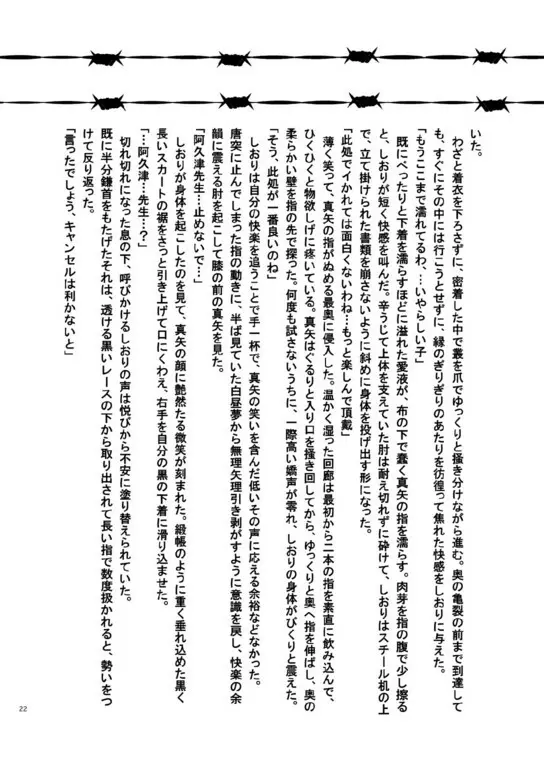 いた。
　わざと着衣を下ろさずに、密着した中で叢を爪でゆっくりと掻き分けながら進む。奥の亀裂の前まで到達して
も、すぐにその中には行こうとせずに、縁のぎりぎりのあたりを彷徨って焦れた快感をしおりに与えた。
「もうここまで濡れてるわ…いやらしい子」
　既にべったりと下着を濡らすほどに溢れた愛液が、布の下で蠢く真矢の指を濡らす。肉芽を指の腹で少し擦る
と、しおりが短く快感を叫んだ。辛うじて上体を支えていた肘は耐え切れずに砕けて、しおりはスチール机の上
で、立て掛けられた書類を崩さないように斜めに身体を投げ出す形になった。
「此処でイかれては面白くないわね…もっと楽しんで頂戴」
　薄く笑って、真矢の指がぬめる最奥に侵入した。温かく湿った回廊は最初から二本の指を素直に飲み込んで、
ひくひくと物欲しげに疼いている。真矢はぐるりと入り口を掻き回してから、ゆっくりと奥へ指を伸ばし、奥の
柔らかい壁を指の先で探った。何度も試さないうちに、一際高い嬌声が零れ、しおりの身体がびくりと震えた。
「そう、此処が一番良いのね」
　しおりは自分の快楽を追うことで手一杯で、真矢の笑いを含んだ低いその声に応える余裕などなかった。
唐突に止んでしまった指の動きに、半ば見ていた白昼夢から無理矢理引き剥がすように意識を戻し、快楽の余
韻に震える肘を起こして膝の前の真矢を見た。
「阿久津先生…止めないで…」
　しおりが身体を起こしたのを見て、真矢の顔に艶然たる微笑が刻まれた。緞帳のように重く垂れ込めた黒く
長いスカートの裾をさっと引き上げて口にくわえ、右手を自分の黒の下着に滑り込ませた。
「…阿久津…先生…？」
　切れ切れになった息の下、呼びかけるしおりの声は悦びから不安に塗り替えられていた。
既に半分鎌首をもたげたそれは、透ける黒いレースの下から取り出されて長い指で数度扱かれると、勢いをつ
けて反り返った。
「言ったでしょう、キャンセルは利かないと」
22